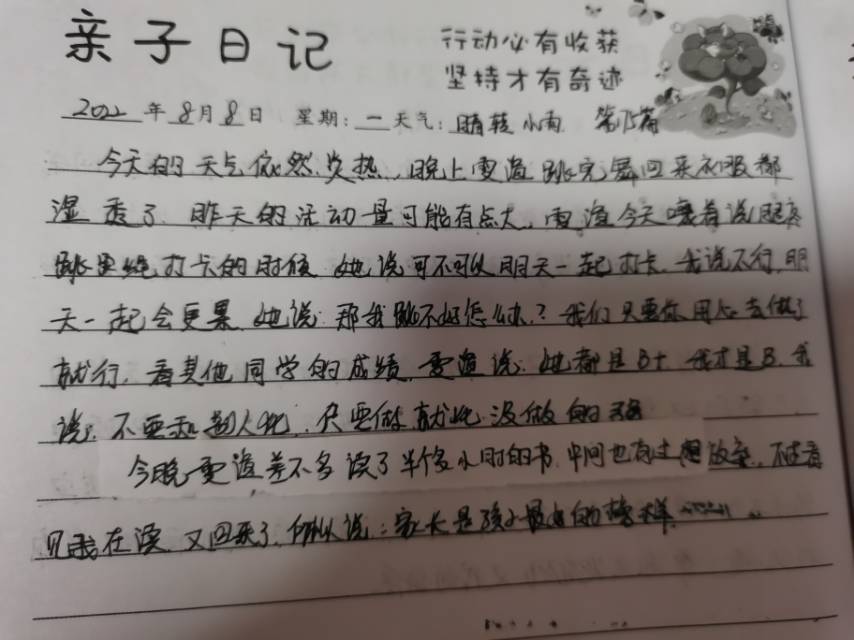 亲子日记
行动必有收获
坚持才有奇迹
2022年8月8日 星期:一 天气:晴转小雨 第15篇
今天的天气依然炎热,晚上雯渲跳完舞回来衣服都
湿透了,昨天的活动量可能有点大,雯渲今天嚷着说腿疼
跳绳打卡的时候,她说可不可以明天一起打卡,我说不行,明
天一起会更累,她说:那我跳不好怎么办?我们只要你用心去做了
就行,看其他同学的成绩,雯渲说:她都是B+,我才是B,我
说:不要和别人比,只要做就比没做的强
今晚雯渲差不多读了半个多小时的书,中间也有过想放弃,不过看
见我在读,又回来了,所以说:家长是孩子最好的榜样